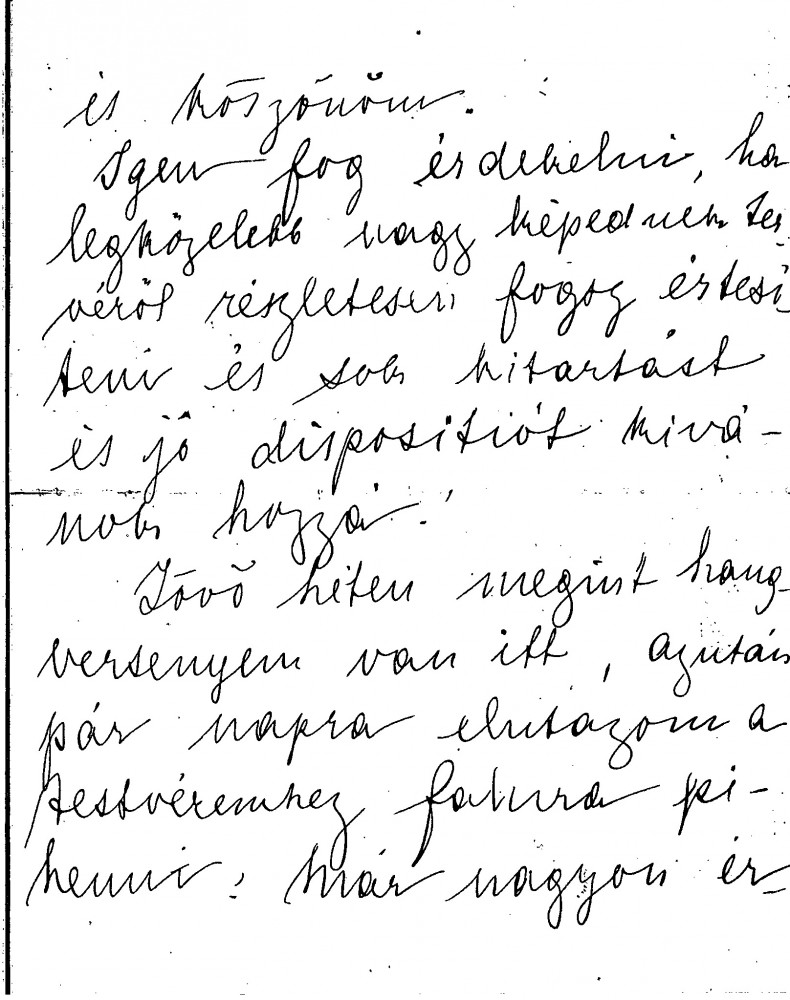 és köszönöm.
Igen fog érdekelni, ha
legközelebb nagy képednek ter-
véről részletesen fogsz értesi-
teni és sok kitartást
és jó dispositiót kivá-
nok hozzá!
Jövő héten megint hang-
versenyem van itt, azután
pár napra elutazom a
testvéremhez falura pi-
henni; már nagyon ér-